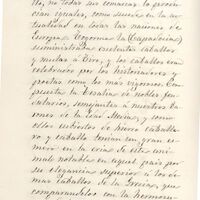 Ro, no todas sus comarcas la producian
iguales, como sucede en la actualidad
en todas las naciones de
Europa. Togorma la (Capadocia)
suministraba excelentes caballos
y mulas a Tiro, y los caballos eran
celebrados por los historiadores y
poetas como los mas vigorosos. Com
puesta la Tesalia de nobles feu
datarios, semejantes á nuestros ba
rones de la Edad Media, y como
ellos cubiertos de hierro caballe
ro y caballo tenian con gran es
mero en la cria de este ani
mal notable en aquel pais por
su elegancia superior á los de
mas caballos de la Grecia, que
comparandolos con la hermosu